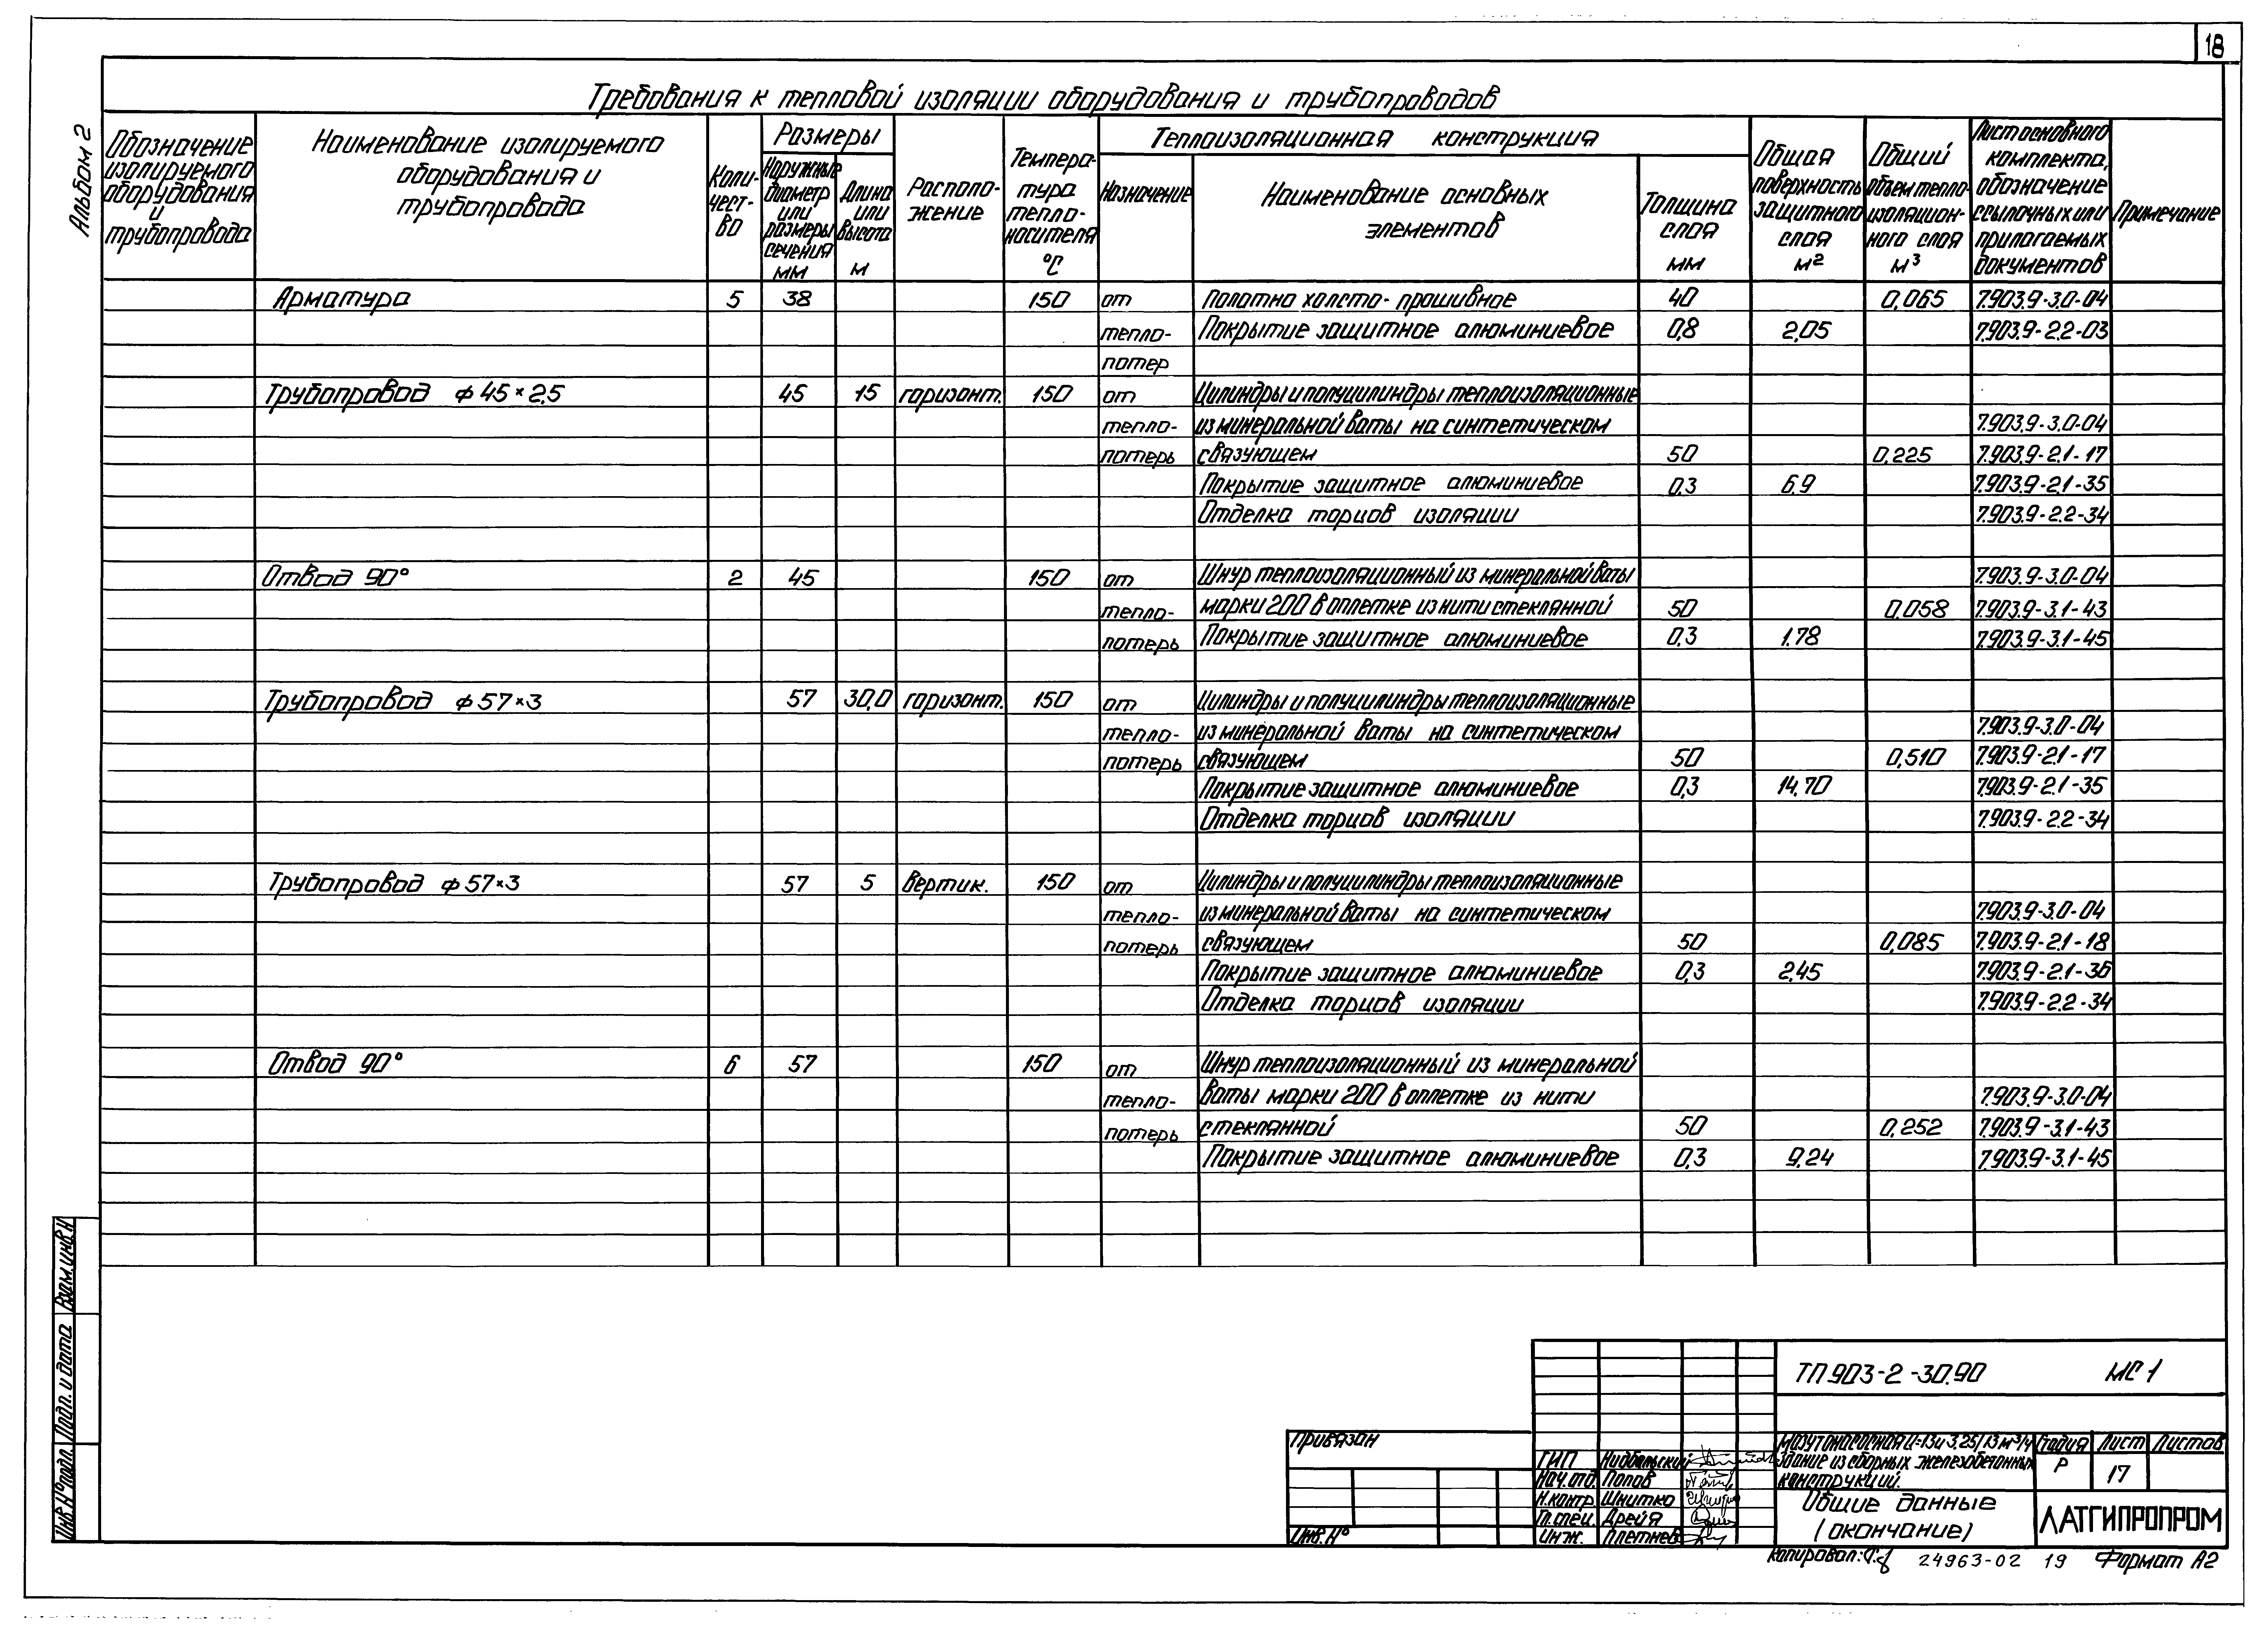 18
Альбом 2
Требования к тепловой изоляции оборудования и трубопроводов
Обозначение изолируемого оборудования и трубопровода
Наименование изолируемого оборудования и трубопровода
Коли-чест-во
Размеры
Наружные диаметр или размеры сечения мм
Длина или высота м
Располо-жение
Темпера-тура тепло-носителя °С
Теплоизоляционная конструкция
Назначение
Наименование основных элементов
Толщина слоя мм
Общая поверхность защитного слоя м²
Общий объем тепло-изоляцион-ного слоя м³
Лист основного комплекта, обозначение ссылочных или прилагаемых документов
Примечание
Арматура 5 38 150 от Полотно холсто-прошивное 40 0,065 7.903.9-3.0-04
тепло- Покрытие защитное алюминиевое 0,8 2,05 7.903.9-2.2-03
потер
Трубопровод ф 45×2,5 45 15 горизонт. 150 от Цилиндры и полуцилиндры теплоизоляционные
тепло- из минеральной ваты на синтетическом 7.903.9-3.0-04
потерь связующем 50 0,225 7.903.9-2.1-17
Покрытие защитное алюминиевое 0,3 6,9 7.903.9-2.1-35
Отделка торцов изоляции 7.903.9-2.2-34
Отвод 90° 2 45 150 от Шнур теплоизоляционный из минеральной ваты 7.903.9-3.0-04
тепло- марки 200 в оплетке из нити стеклянной 50 0,058 7.903.9-3.1-43
потерь Покрытие защитное алюминиевое 0,3 1.78 7.903.9-3.1-45
Трубопровод ф 57×3 57 30,0 горизонт. 150 от Цилиндры и полуцилиндры теплоизоляционные
тепло- из минеральной ваты на синтетическом 7.903.9-3.0-04
потерь связующем 50 0,510 7.903.9-2.1-17
Покрытие защитное алюминиевое 0,3 14,70 7.903.9-2.1-35
Отделка торцов изоляции 7.903.9-2.2-34
Трубопровод ф 57×3 57 5 вертик. 150 от Цилиндры и полуцилиндры теплоизоляционные
тепло- из минеральной ваты на синтетическом 7.903.9-3.0-04
потерь связующем 50 0,085 7.903.9-2.1-18
Покрытие защитное алюминиевое 0,3 2,45 7.903.9-2.1-36
Отделка торцов изоляции 7.903.9-2.2-34
Отвод 90° 6 57 150 от Шнур теплоизоляционный из минеральной
тепло- ваты марки 200 в оплетке из нити 7.903.9-3.0-04
потерь стеклянной 50 0,252 7.903.9-3.1-43
Покрытие защитное алюминиевое 0,3 9,24 7.903.9-3.1-45
Взам.инв.N
Подп. и дата
Инв.N°подл.
ТП 903-2-30.90 МС 1
Привязан
Инв. N°
ГИП Нидбальский
Нач.отд. Попов
Н.контр. Шнитко
Гл.спец. Дрейя
Инж. Плетнев
Мазутонасосная Q=13 и 3,25/13 м³/ч
Здание из сборных железобетонных
конструкций.
Стадия Лист Листов
Р 17
Общие данные
(окончание)
ЛАТГИПРОПРОМ
Копировал: 24963-02 19 Формат А2